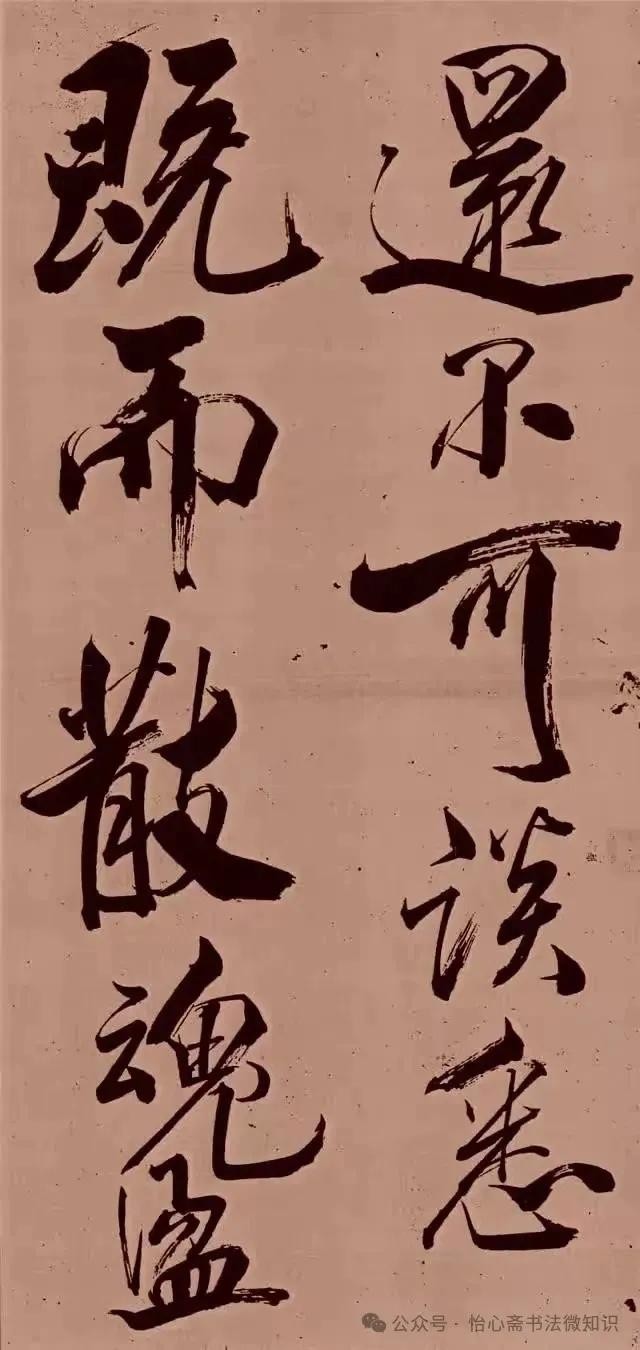 還不可談悉
既而散魂
公众号 · 怡心斋书法微知识